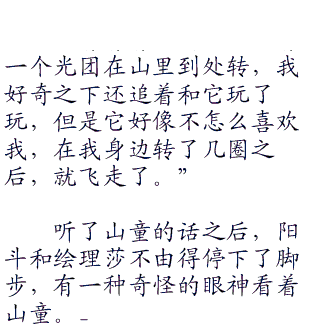 一个光团在山里到处转，我
好奇之下还追着和它玩了
玩，但是它好像不怎么喜欢
我，在我身边转了几圈之
后，就飞走了。”
听了山童的话之后，阳
斗和绘理莎不由得停下了脚
步，有一种奇怪的眼神看着
山童。